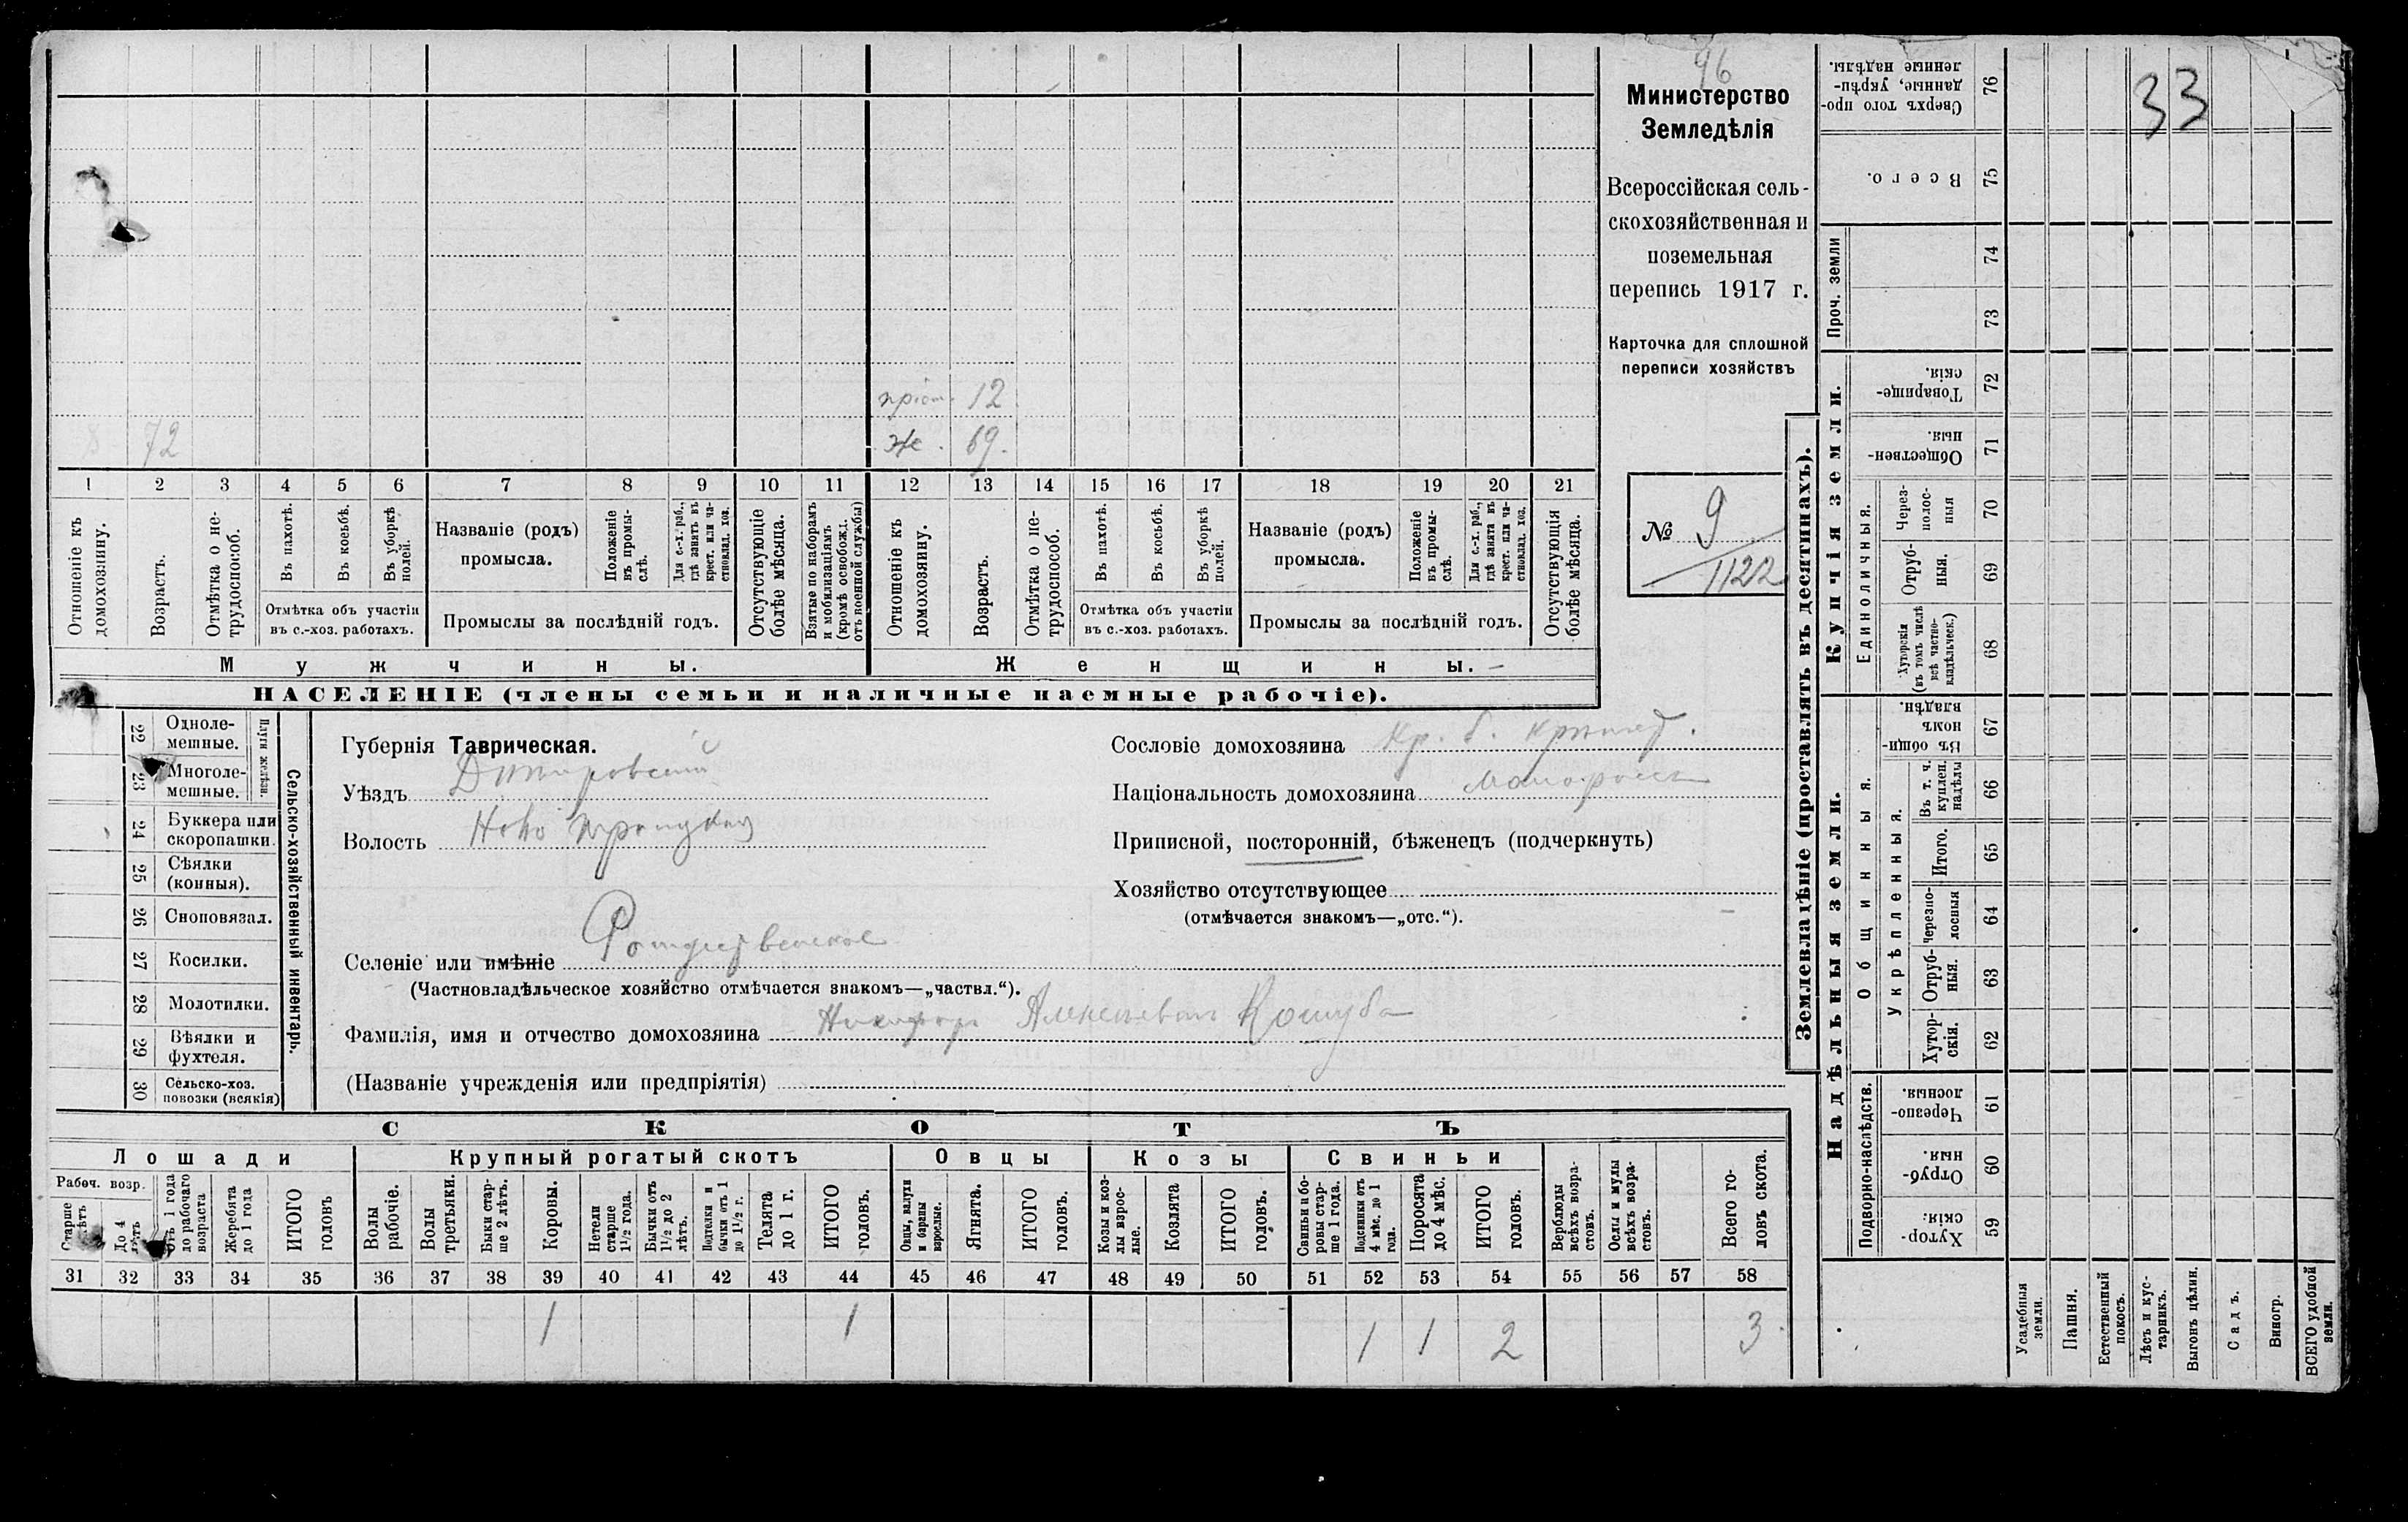 96
33
Министерство
Земледѣлія
Всероссійская сель-
скохозяйственная и
поземельная
перепись 1917 г.
Карточка для сплошной
переписи хозяйствъ
№ 9
1122
12
72 же. 69.
1 2 3 4 5 6 7 8 9 10 11 12 13 14 15 16 17 18 19 20 21
Отношеніе къ
домохозяину.
Возрастъ.
Отмѣтка о не-
трудоспособ.
Въ пахотѣ.
Въ косьбѣ.
Въ уборкѣ
полей.
Отмѣтка объ участіи
въ с.-хоз. работахъ.
Названіе (родъ)
промысла.
Положеніе
въ промы-
слѣ.
Для с.-х. раб.,
гдѣ занятъ въ
крест. или ча-
стновлад. хоз.
Промыслы за послѣдній годъ.
Отсутствующіе
болѣе мѣсяца.
Взятые по наборамъ
и мобилизаціямъ
(кромѣ освобожд.
отъ военной службы)
Отношеніе къ
домохозяину.
Возрастъ.
Отмѣтка о не-
трудоспособ.
Въ пахотѣ.
Въ косьбѣ.
Въ уборкѣ
полей.
Отмѣтка объ участіи
въ с.-хоз. работахъ.
Названіе (родъ)
промысла.
Положеніе
въ промы-
слѣ.
Для с.-х. раб.,
гдѣ занята въ
крест. или ча-
стновлад. хоз.
Промыслы за послѣдній годъ.
Отсутствующія
болѣе мѣсяца.
Мужчины. Женщины.
НАСЕЛЕНІЕ (члены семьи и наличные наемные рабочіе).
Сельско-хозяйственный инвентарь.
Плуги желѣзн.
22 Одноле-
мешные.
23 Многоле-
мешные.
24 Буккера или
скоропашки.
25 Сѣялки
(конныя).
26 Сноповязал.
27 Косилки.
28 Молотилки.
29 Вѣялки и
фухтеля.
30 Сельско-хоз.
повозки (всякія)
Губернія Таврическая.
Уѣздъ
Волость Ново
Селеніе или имѣніе
(Частновладѣльческое хозяйство отмѣчается знакомъ—„частвл.“).
Фамилія, имя и отчество домохозяина
(Названіе учрежденія или предпріятія)
Сословіе домохозяина кр. б.
Національность домохозяина
Приписной, посторонній, бѣженецъ (подчеркнуть)
Хозяйство отсутствующее
(отмѣчается знакомъ—„отс.“).
СКОТЪ
Лошади Крупный рогатый скотъ Овцы Козы Свиньи
Рабоч. возр.
Старше
лѣтъ
До 4
лѣтъ
Отъ 1 года
до рабочаго
возраста
Жеребята
до 1 года
ИТОГО
головъ
Волы
рабочіе.
Волы
третьяки.
Быки стар-
ше 2 лѣтъ.
Коровы.
Нетели
старше
1½ года.
Бычки отъ
1½ до 2
лѣтъ.
Подтелки и
бычки отъ 1
до 1½ г.
Телята
до 1 г.
ИТОГО
головъ.
Овцы, валухи
и бараны
взрослые.
Ягнята.
ИТОГО
головъ.
Козы и коз-
лы взрос-
лые.
Козлята
ИТОГО
головъ.
Свиньи и бо-
ровы стар-
ше 1 года.
Подсвинки отъ
4 мѣс. до 1
года.
Поросята
до 4 мѣс.
ИТОГО
головъ.
Верблюды
всѣхъ возра-
стовъ.
Ослы и мулы
всѣхъ возра-
стовъ.
Всего го-
ловъ скота.
31 32 33 34 35 36 37 38 39 40 41 42 43 44 45 46 47 48 49 50 51 52 53 54 55 56 57 58
1 1 1 1 2 3
Землевладѣніе (проставлять въ десятинахъ).
Купчія земли.
Надѣльныя земли.
Сверхъ того про-
данные, укрѣп-
ленные надѣлы.
76
Всего.
75
Проч. земли
74
73
Товарище-
скія.
72
Обществен-
ныя.
71
Единоличныя.
Через-
полос-
ныя
70
Отруб-
ныя.
69
Хуторскія
(въ томъ числѣ
всѣ частно-
владѣльческ.)
68
Общинныя.
Въ общин-
номъ
владѣн.
67
Укрѣпленныя.
Въ т. ч.
куплен.
надѣлы
66
Итого.
65
Черезпо-
лосныя
64
Отруб-
ныя.
63
Хутор-
скія.
62
Подворно-наслѣдств.
Черезпо-
лосныя.
61
Отруб-
ныя.
60
Хутор-
скія.
59
Усадебныя
земли.
Пашня.
Естественный
покосъ.
Лѣсъ и кус-
тарникъ.
Выгонъ цѣлин.
Садъ.
Виногр.
ВСЕГО удобной
земли.